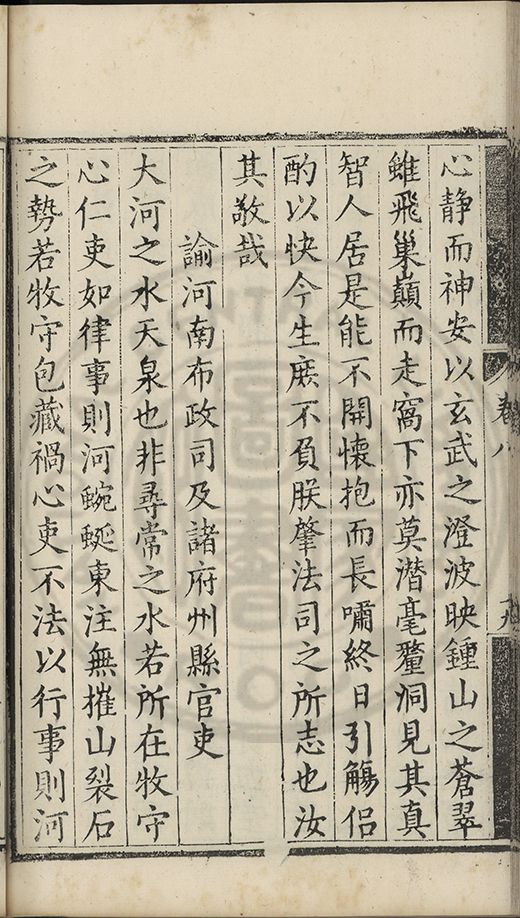 心靜而神安以玄武之澄波映鍾山之蒼翠
雖飛巢巔而走窩下亦莫潛毫釐洞見其真
智人居是能不開懷抱而長嘯終日引觴侶
酌以快今生庶不負朕肇法司之所志也汝
其敬哉
諭河南布政司及諸府州縣官吏
大河之水天泉也非尋常之水若所在牧守
心仁吏如律事則河蜿蜒東注無摧山裂石
之勢若牧守包藏禍心吏不法以行事則河
卷八